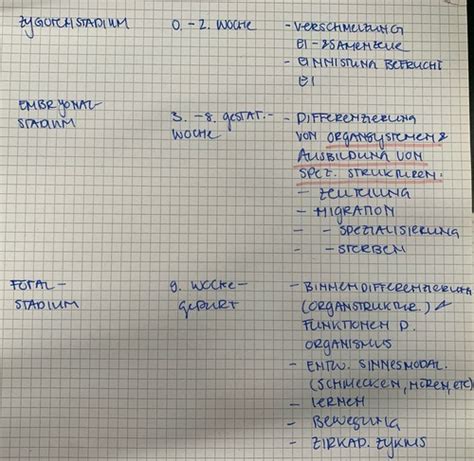 ZYGOTENSTADIUM 0. - 2. WOCHE - VERSCHMELZUNG
EI - & SAMENZELLE
- EINNISTUNG BEFRUCHT
EI
EMBRYONAL-
STADIUM 3. - 8. GESTAT.- - DIFFERENZIERUNG
WOCHE VON ORGANSYSTEMEN &
AUSBILDUNG VON
SPEZ. STRUKTUREN:
- ZELLTEILUNG
- MIGRATION
- - SPEZIALISIERUNG
- - STERBEN
FÖTAL-
STADIUM 9. WOCHE- - BINNENDIFFERENZIERUNG
GEBURT (ORGANSTRUKTUR.)
FUNKTIONEN D.
ORGANISMUS
- ENTW. SINNESMODAL.
(SCHMECKEN, HÖREN, ETC.
- LERNEN
- BEWEGUNG
- ZIRKAD. ZYKLUS